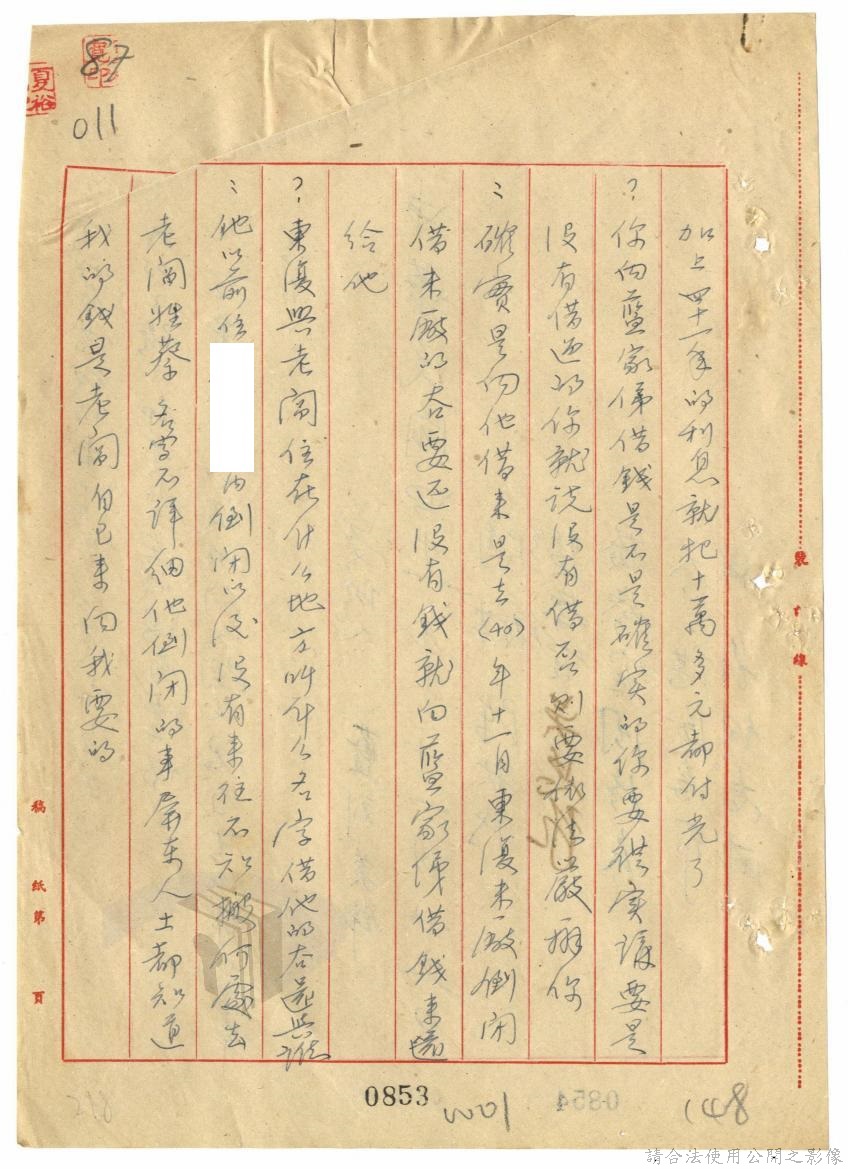 87
011
148
加上四十一年的利息就把十萬多元都付光了
? 你向藍家俤借錢是不是確实的你要祺实講要是
沒有借過的你就说沒有借否則要依法嚴辦你
: 確實是向他借来是去(40)年十一月東復米厰倒閉
借米厰的谷要还没有錢就向藍家俤借錢来還
給他
? 東復興老闆住在什么地方叫什么名字借他的谷還與誰
: 他以前住 内倒閉以後没有来往不知搬何處去
老闆姓蔡名字不詳細他倒閉的事屏東人士都知道
我的錢是老闆自己来向我要的
裝訂線
稿紙第 頁
0853
148
請合法使用公開之影像